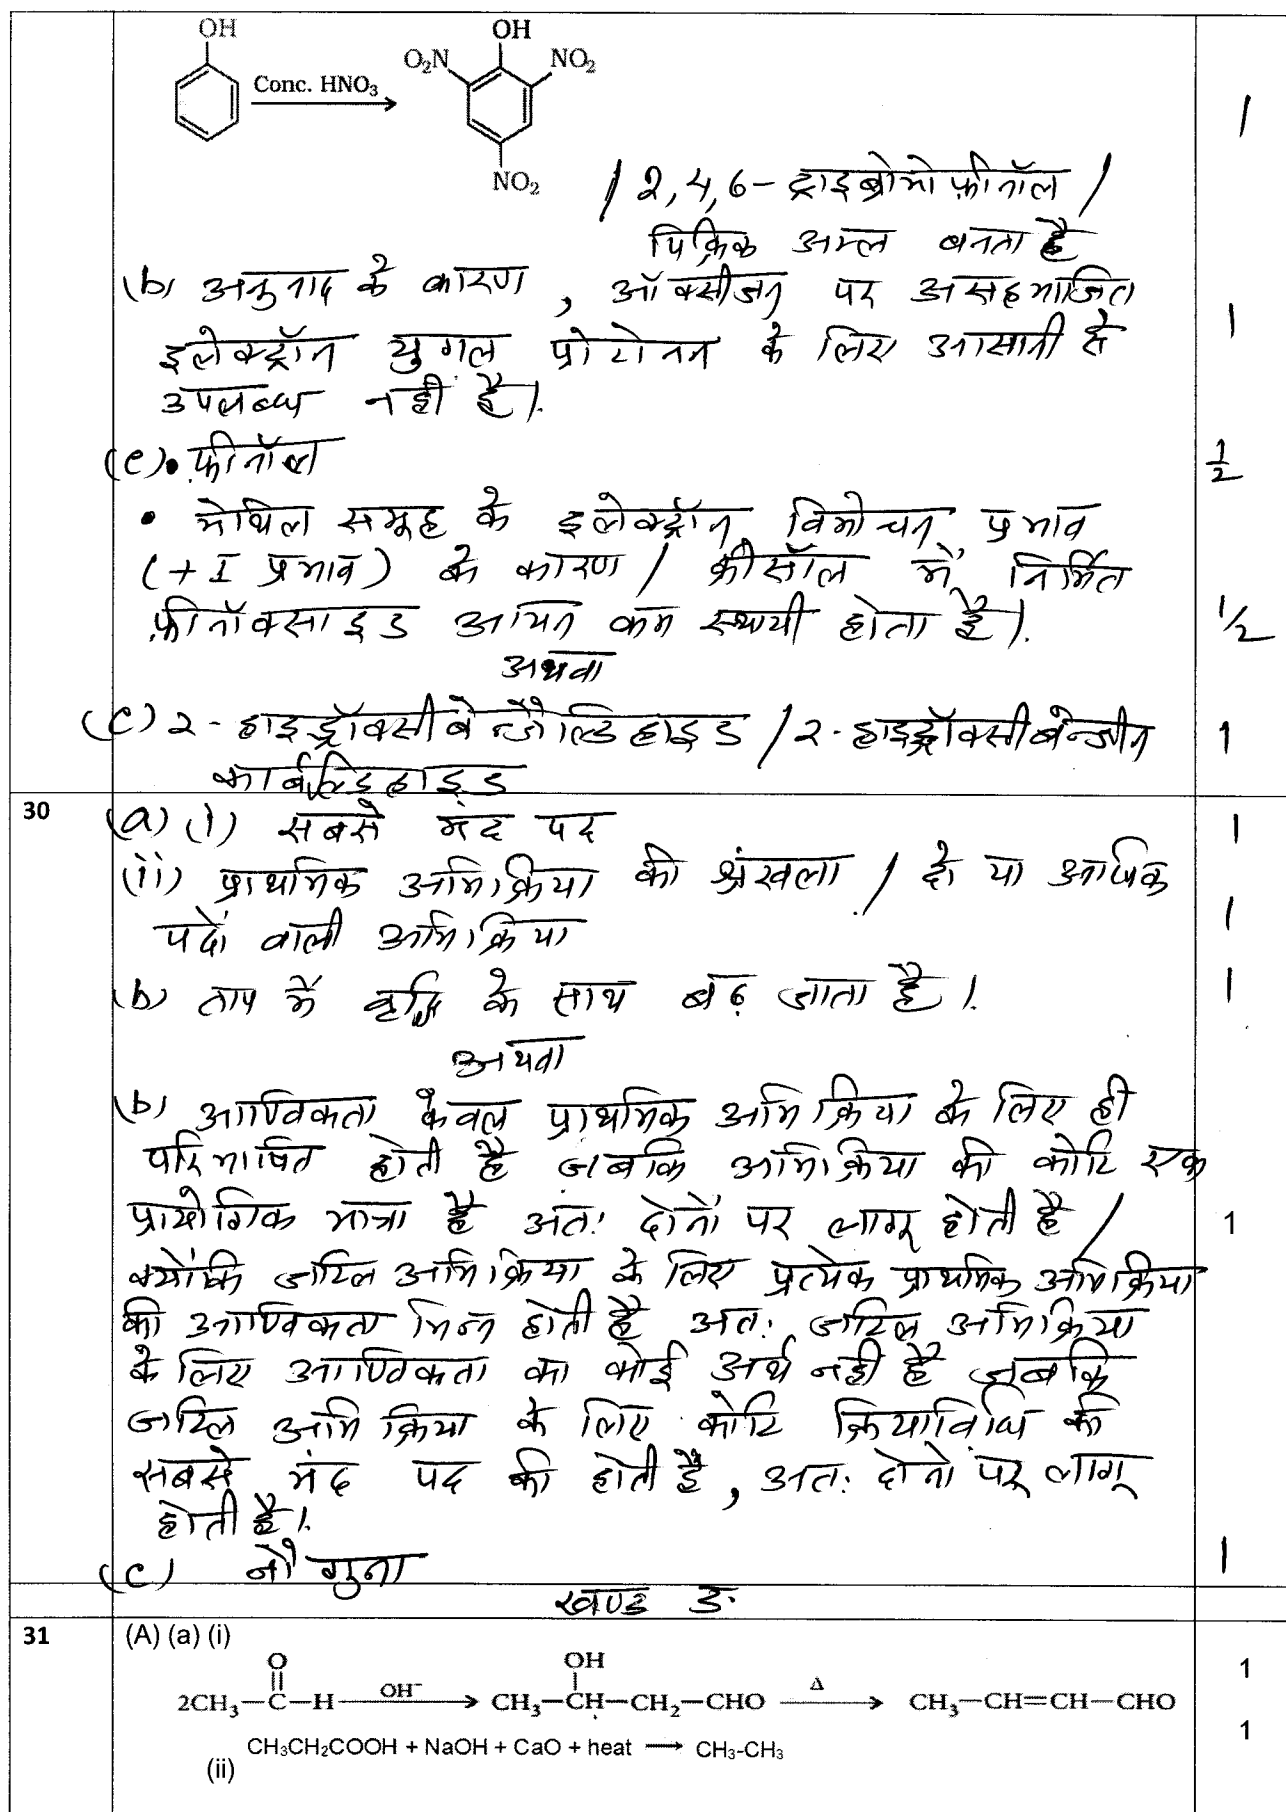 OH
Conc. HNO₃
OH
O₂N
NO₂
NO₂
1
/ 2,4,6- ट्राइब्रोमो फ़ीनॉल /
पिक्रिक अम्ल बनता है
(b) अनुनाद के कारण , ऑक्सीजन पर असहभाजित
इलेक्ट्रॉन युगल प्रोटोनन के लिए आसानी से
उपलब्ध नहीं है।
1
(c)• फ़ीनॉल
1/2
• मेथिल समूह के इलेक्ट्रॉन विमोचन प्रभाव
(+I प्रभाव) के कारण / क्रीसॉल में निर्मित
फ़ीनॉक्साइड आयन कम स्थायी होता है।
1/2
अथवा
(c) 2- हाइड्रॉक्सीबेन्ज़ैल्डिहाइड / 2- हाइड्रॉक्सीबेन्जीन
कार्बल्डिहाइड
1
30
(a) (i) सबसे मंद पद
1
(ii) प्राथमिक अभिक्रिया की श्रंखला / दो या आणिक
पदों वाली अभिक्रिया
1
(b) ताप में वृद्धि के साथ बढ़ जाता है।
1
अथवा
(b) आण्विकता केवल प्राथमिक अभिक्रिया के लिए ही
परिभाषित होती है जबकि अभिक्रिया की कोटि एक
प्रायोगिक मात्रा है अत: दोनों पर लागू होती है /
1
क्योंकि जटिल अभिक्रिया के लिए प्रत्येक प्राथमिक अभिक्रिया
की आण्विकता भिन्न होती है अत: जटिल अभिक्रिया
के लिए आण्विकता का कोई अर्थ नही है जबकि
जटिल अभिक्रिया के लिए कोटि क्रियाविधि की
सबसे मंद पद की होती है , अत: दोनो पर लागू
होती है।
(c) नौ गुना
1
खण्ड ङ
31
(A) (a) (i)
O
OH
2CH₃—C—H
OH⁻
CH₃—CH—CH₂—CHO
Δ
CH₃—CH=CH—CHO
1
(ii) CH₃CH₂COOH + NaOH + CaO + heat → CH₃-CH₃
1